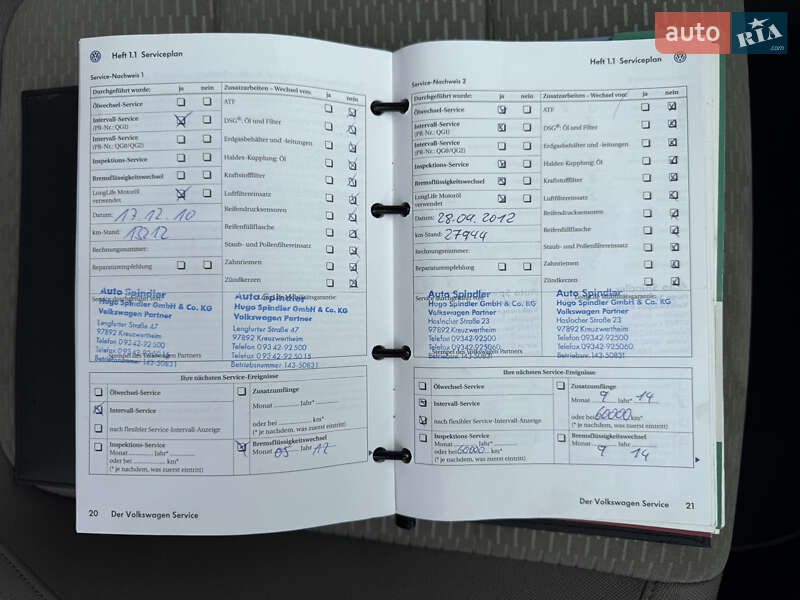 auto RIA.com
Heft 1.1 Serviceplan
Service-Nachweis 1
Durchgeführt wurde: ja nein
Zusatzarbeiten – Wechsel von: ja nein
Ölwechsel-Service
ATF
Intervall-Service
(PR-Nr.: QG1)
DSG®: Öl und Filter
Intervall-Service
(PR-Nr.: QG0/QG2)
Erdgasbehälter und -leitungen
Inspektions-Service
Haldex-Kupplung: Öl
Bremsflüssigkeitswechsel
Kraftstofffilter
LongLife Motoröl
verwendet
Luftfiltereinsatz
Datum: 17.12.10
Reifendrucksensoren
km-Stand: 13212
Reifenfüllflasche
Rechnungsnummer:
Staub- und Pollenfiltereinsatz
Reparaturempfehlung
Zahnriemen
Zündkerzen
Auto Spindler
Hugo Spindler GmbH & Co. KG
Volkswagen Partner
Lengfurter Straße 47
97892 Kreuzwertheim
Telefon 09342-92 500
Betriebsnummer 143-50831
Auto Spindler
Hugo Spindler GmbH & Co. KG
Volkswagen Partner
Lengfurter Straße 47
97892 Kreuzwertheim
Telefon 09342-92 500
Telefax 09342-92 50 15
Betriebsnummer 143-50831
Stempel des Volkswagen Partners
Ihre nächsten Service-Ereignisse
Ölwechsel-Service
Intervall-Service
nach flexibler Service-Intervall-Anzeige
Inspektions-Service
Monat Jahr*
oder bei km*
(* je nachdem, was zuerst eintritt)
Zusatzumfänge
Monat Jahr*
oder bei km*
(* je nachdem, was zuerst eintritt)
Bremsflüssigkeitswechsel
Monat 05 Jahr 12
20 Der Volkswagen Service
Heft 1.1 Serviceplan
Service-Nachweis 2
Durchgeführt wurde: ja nein
Zusatzarbeiten – Wechsel von: ja nein
Ölwechsel-Service
ATF
Intervall-Service
(PR-Nr.: QG1)
DSG®: Öl und Filter
Intervall-Service
(PR-Nr.: QG0/QG2)
Erdgasbehälter und -leitungen
Inspektions-Service
Haldex-Kupplung: Öl
Bremsflüssigkeitswechsel
Kraftstofffilter
LongLife Motoröl
verwendet
Luftfiltereinsatz
Datum: 28.09.2012
Reifendrucksensoren
km-Stand: 27944
Reifenfüllflasche
Rechnungsnummer:
Staub- und Pollenfiltereinsatz
Reparaturempfehlung
Zahnriemen
Zündkerzen
Auto Spindler
Hugo Spindler GmbH & Co. KG
Volkswagen Partner
Haslocher Straße 23
97892 Kreuzwertheim
Telefon 09342-92500
Telefax 09342-925060
Betriebsnr. 143-50831
Auto Spindler
Hugo Spindler GmbH & Co. KG
Volkswagen Partner
Haslocher Straße 23
97892 Kreuzwertheim
Telefon 09342-92500
Telefax 09342-925060
Betriebsnr. 143-50831
Stempel des Volkswagen Partners
Ihre nächsten Service-Ereignisse
Ölwechsel-Service
Intervall-Service
nach flexibler Service-Intervall-Anzeige
Inspektions-Service
Monat Jahr*
oder bei 60000 km*
(* je nachdem, was zuerst eintritt)
Zusatzumfänge
Monat 9 Jahr* 14
oder bei 60000 km*
(* je nachdem, was zuerst eintritt)
Bremsflüssigkeitswechsel
Monat 9 Jahr 14
Der Volkswagen Service 21